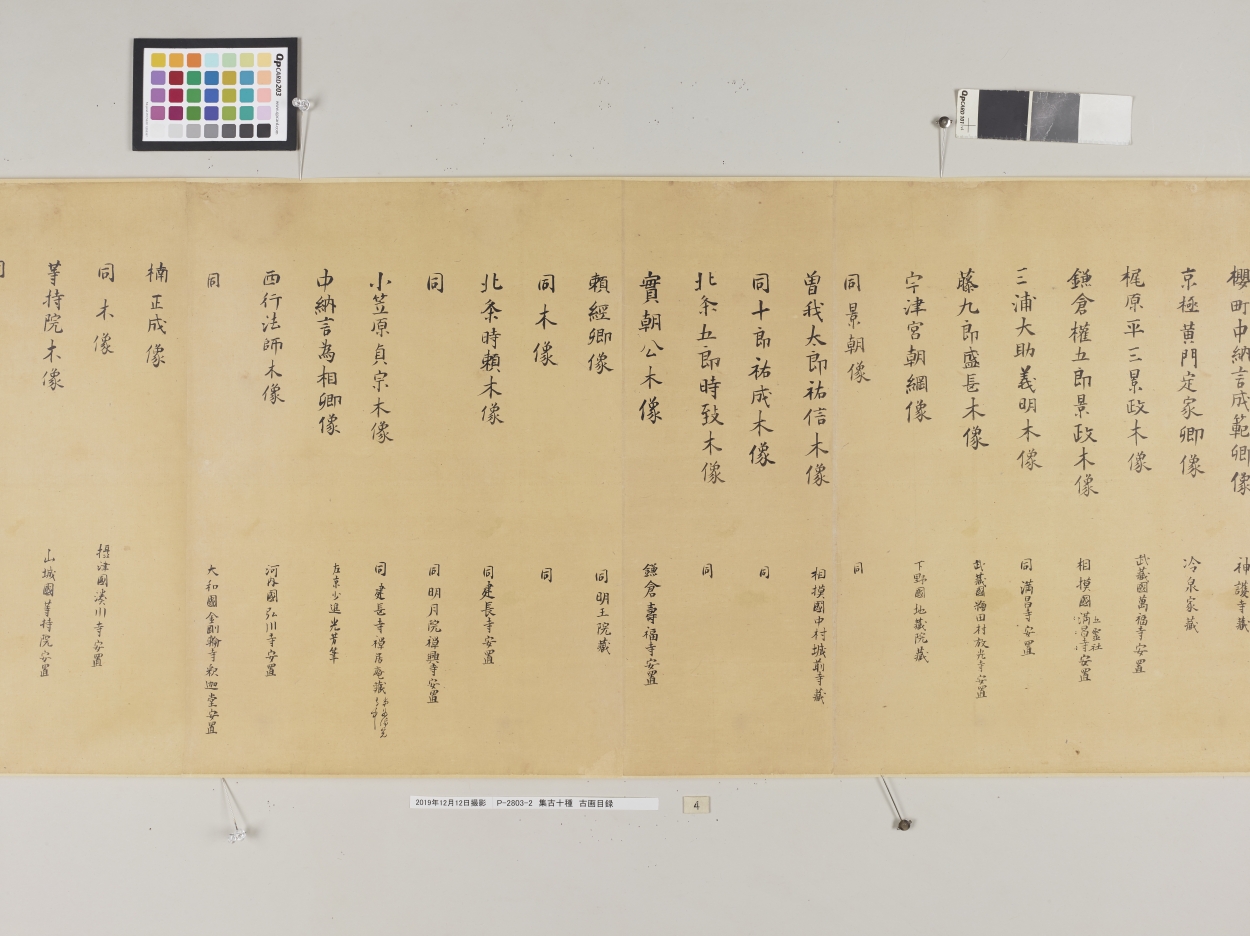 櫻町中納言成範卿像 神護寺藏
京極黄門定家卿像 冷泉家藏
梶原平三景政木像 武藏國萬福寺安置
鎌倉權五郎景政木像 相摸國滿昌寺安置
御靈社
三浦大助義明木像 同滿昌寺安置
藤九郎盛長木像 武藏國 田村放光寺安置
宇津宮朝綱像 下野國地藏院藏
同景朝像 同
曽我太郎祐信木像 相摸國中村城前寺藏
同十郎祐成木像 同
北条五郎時致木像 同
實朝公木像 鎌倉壽福寺安置
頼經卿像 同明王院藏
同木像 同
北条時頼木像 同建長寺安置
同 同明月院禅興寺安置
小笠原貞宗木像 同建長寺禅居庵藏
中納言為相卿像 左京少進光芳筆
西行法師木像 河内國弘川寺安置
同 大和國金剛輪寺釈迦堂安置
楠正成像
同木像 摂津國湊川寺安置
等持院木像 山城國等持院安置
同
QpCARD 203
QpCARD 101
2019年12月12日撮影 P-2803-2 集古十種 古画目録
4